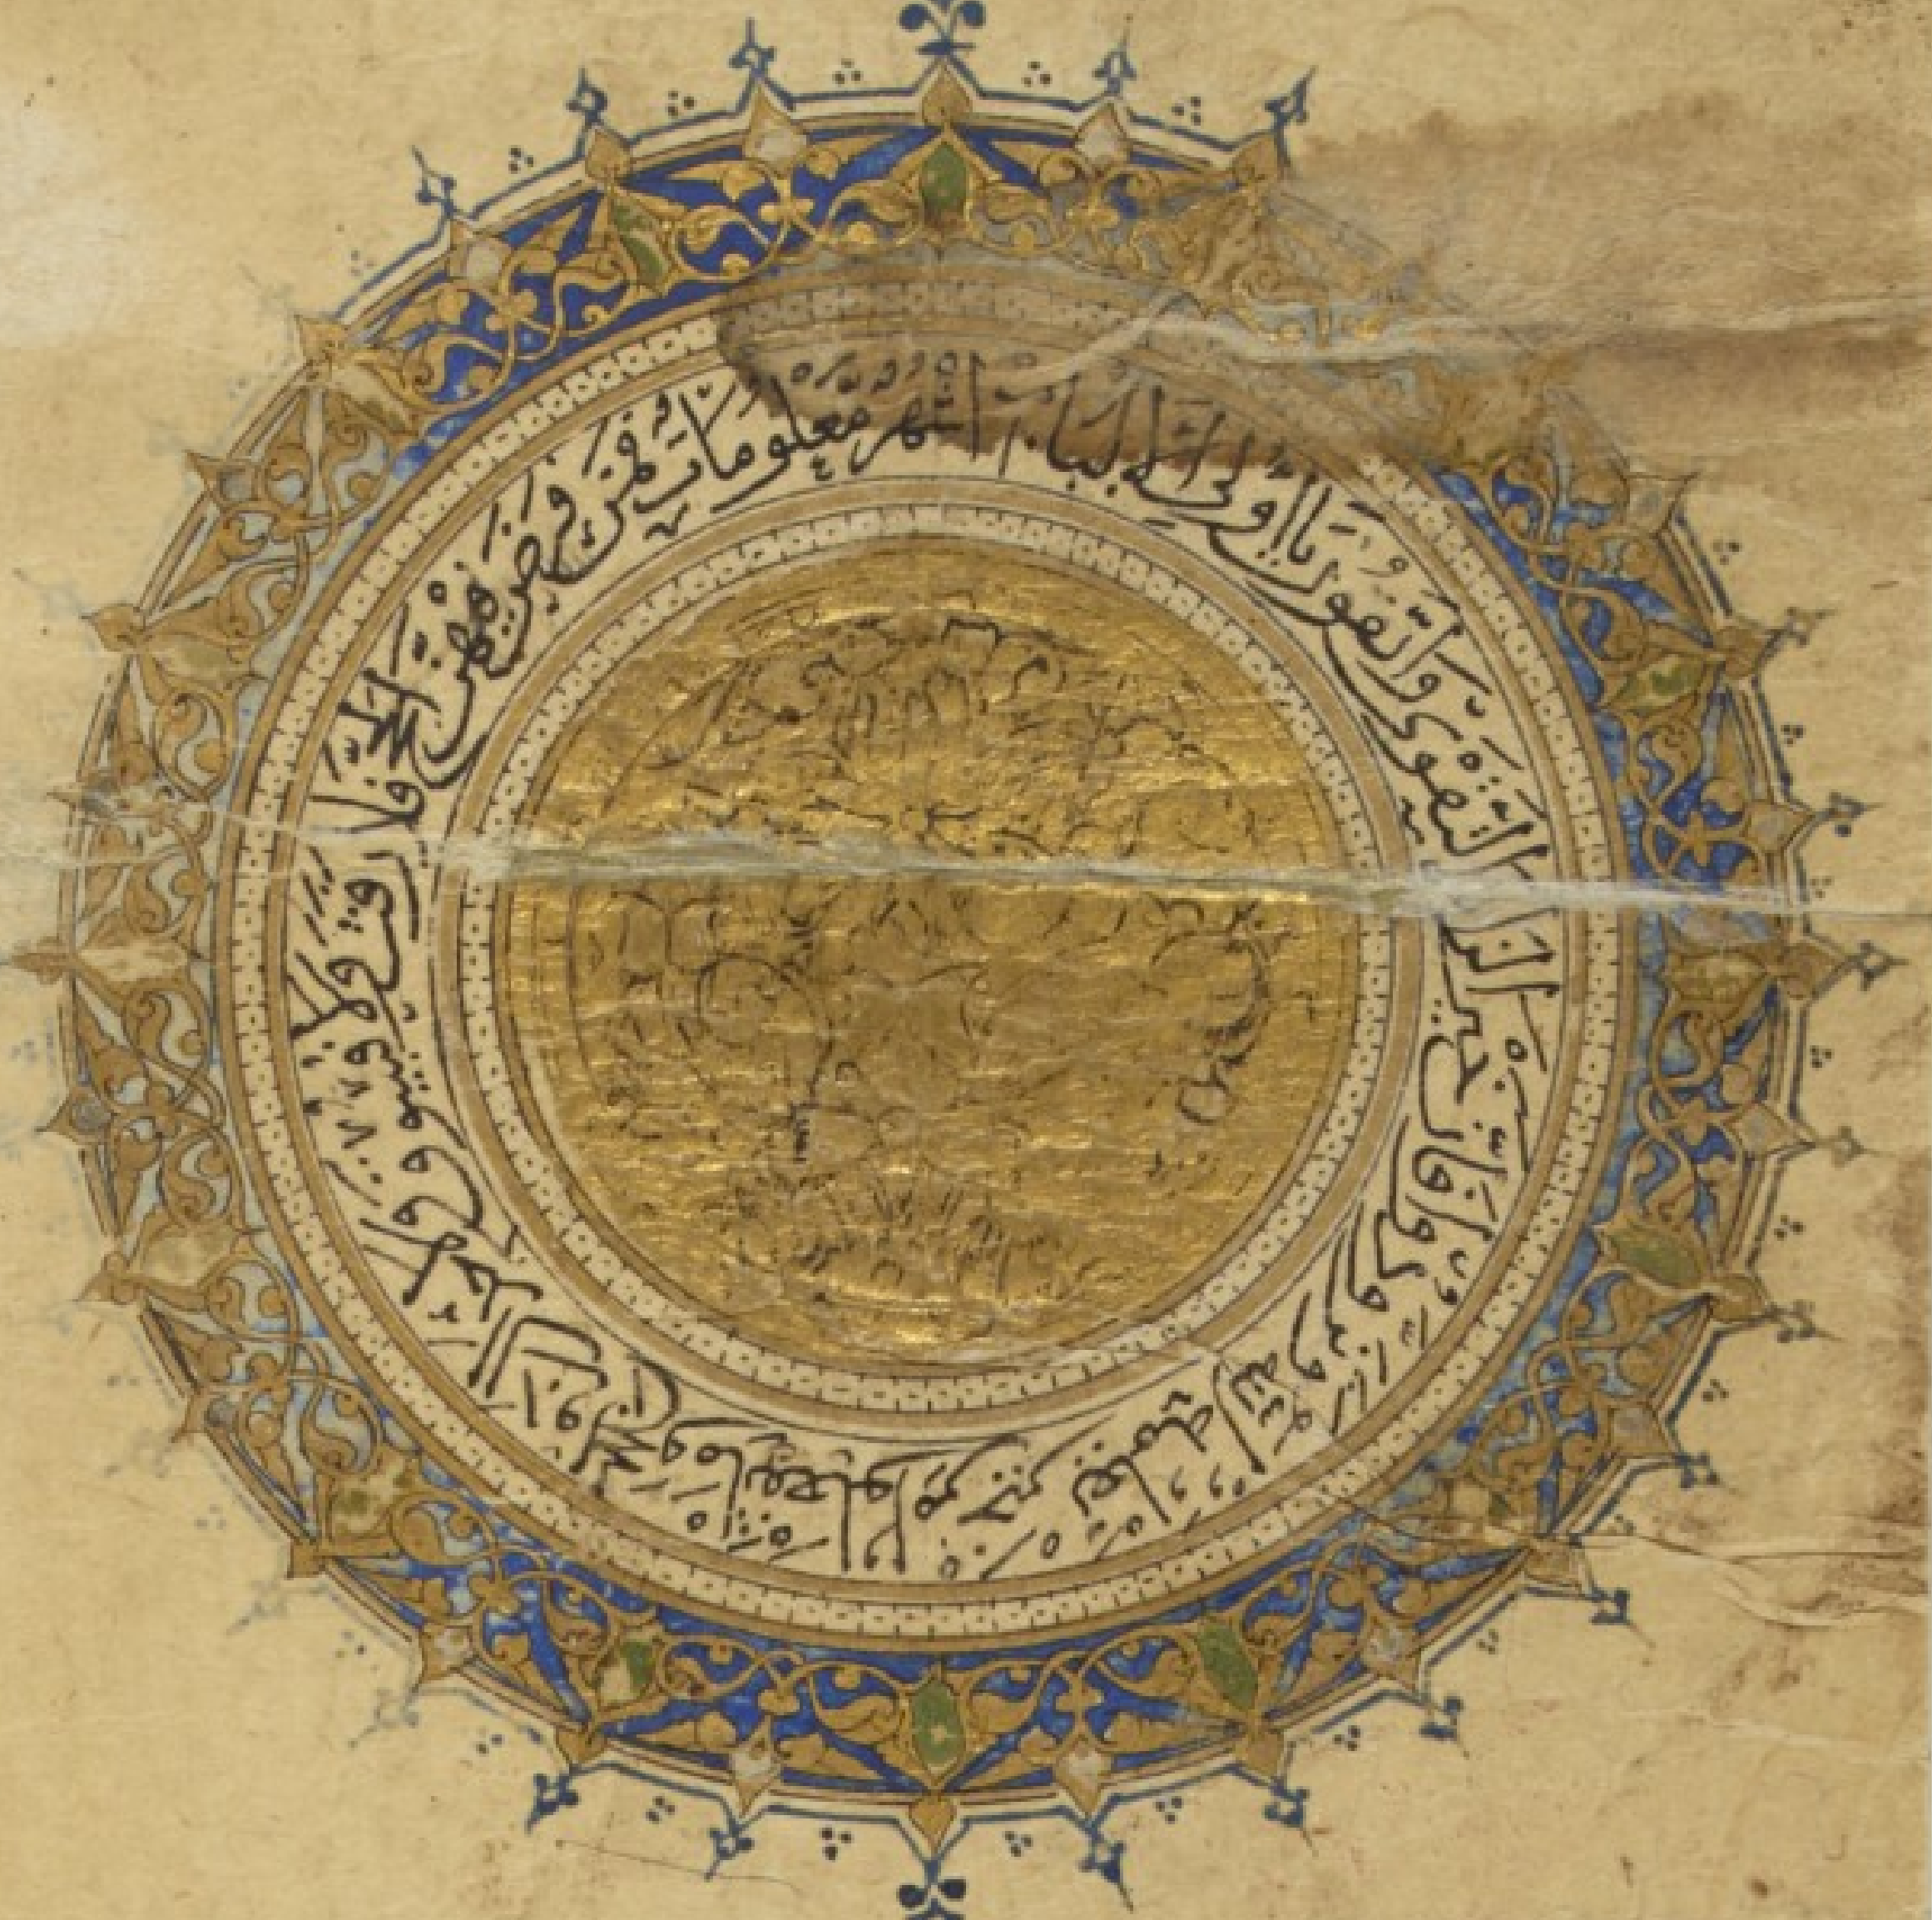 اشهر معلومات فمن فرض فيهن الحج فلا رفث ولا فسوق ولا جدال في الحج وما تفعلوا من خير يعلمه الله وتزودوا فان خير الزاد التقوى واتقون يااولى الالباب